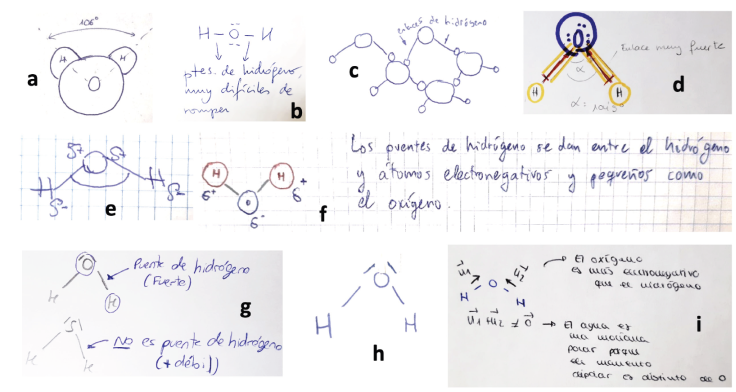 106°
H H
O
a
H – O – H
ptes. de hidrógeno,
muy difíciles de
romper
b
enlaces de hidrógeno
c
O
Enlace muy fuerte
α
H H
α = 104'5°
d
δ+ δ+
H H
δ- δ-
e
H H
δ+ δ+
O
δ-
f
Los puentes de hidrógeno se dan entre el hidrógeno
y átomos electronegativos y pequeños como
el oxígeno.
O
H H
Puente de hidrógeno
(Fuerte)
g
S
H H
NO es puente de hidrógeno
(+ débil)
O
H H
h
μ1 μ2
O
H H
El oxígeno
es más electronegativo
que el hidrógeno
μ1 + μ2 ≠ 0
El agua es
una molécula
polar porque
el momento
dipolar es distinto de 0
i